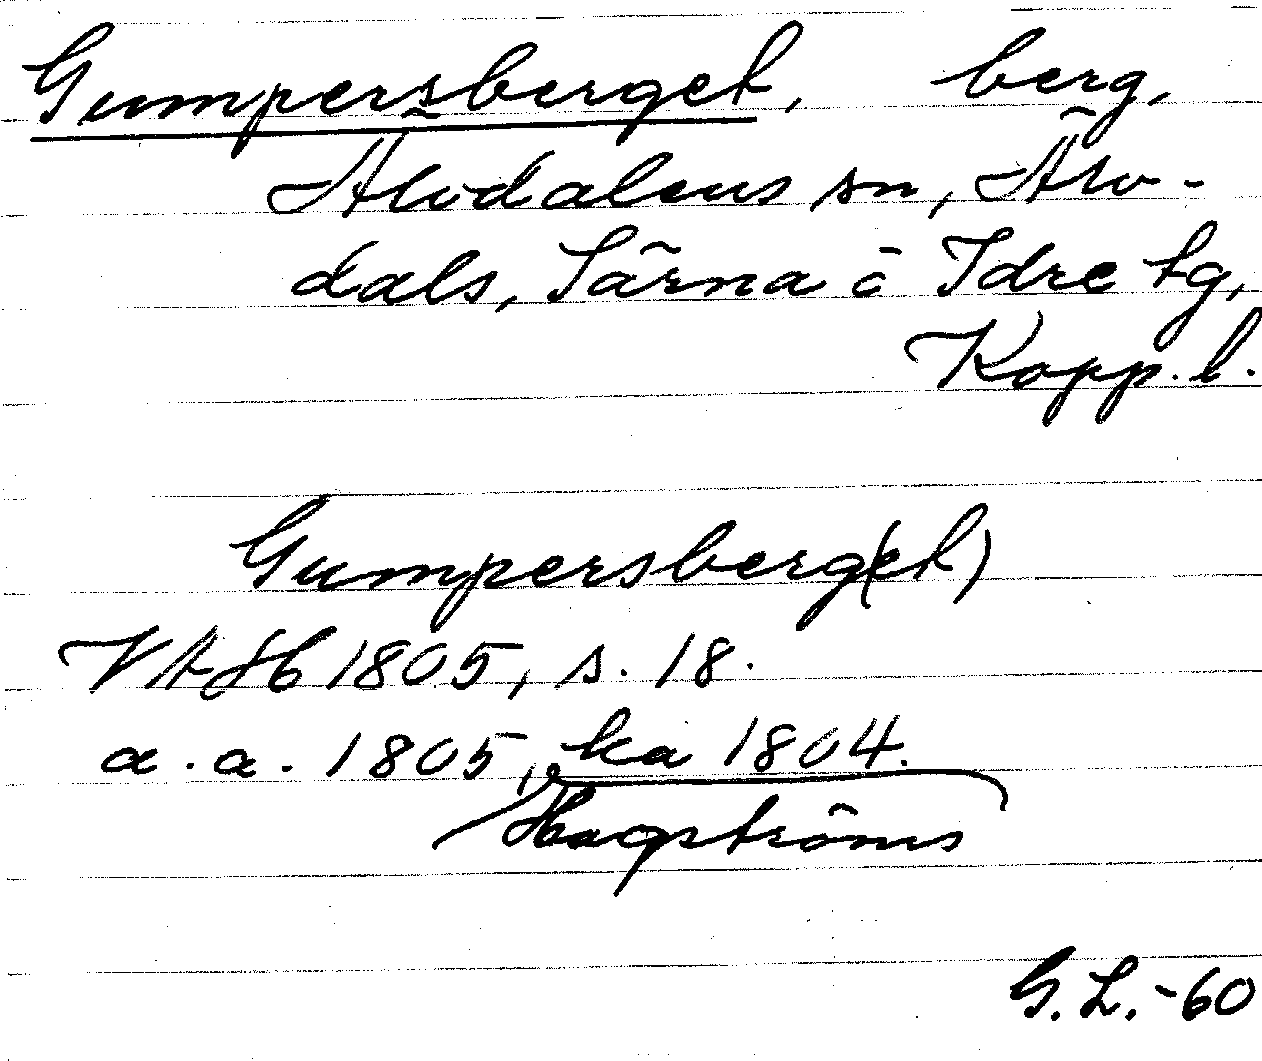 Gumpersberget, berg,
Älvdalens sn, Älv-
dals, Särna o Idre tg,
Kopp. l.
Gumpersberg(et)
VAHb 1805, s. 18.
a. a. 1805, ka 1804.
Hagströms
G. L. -60